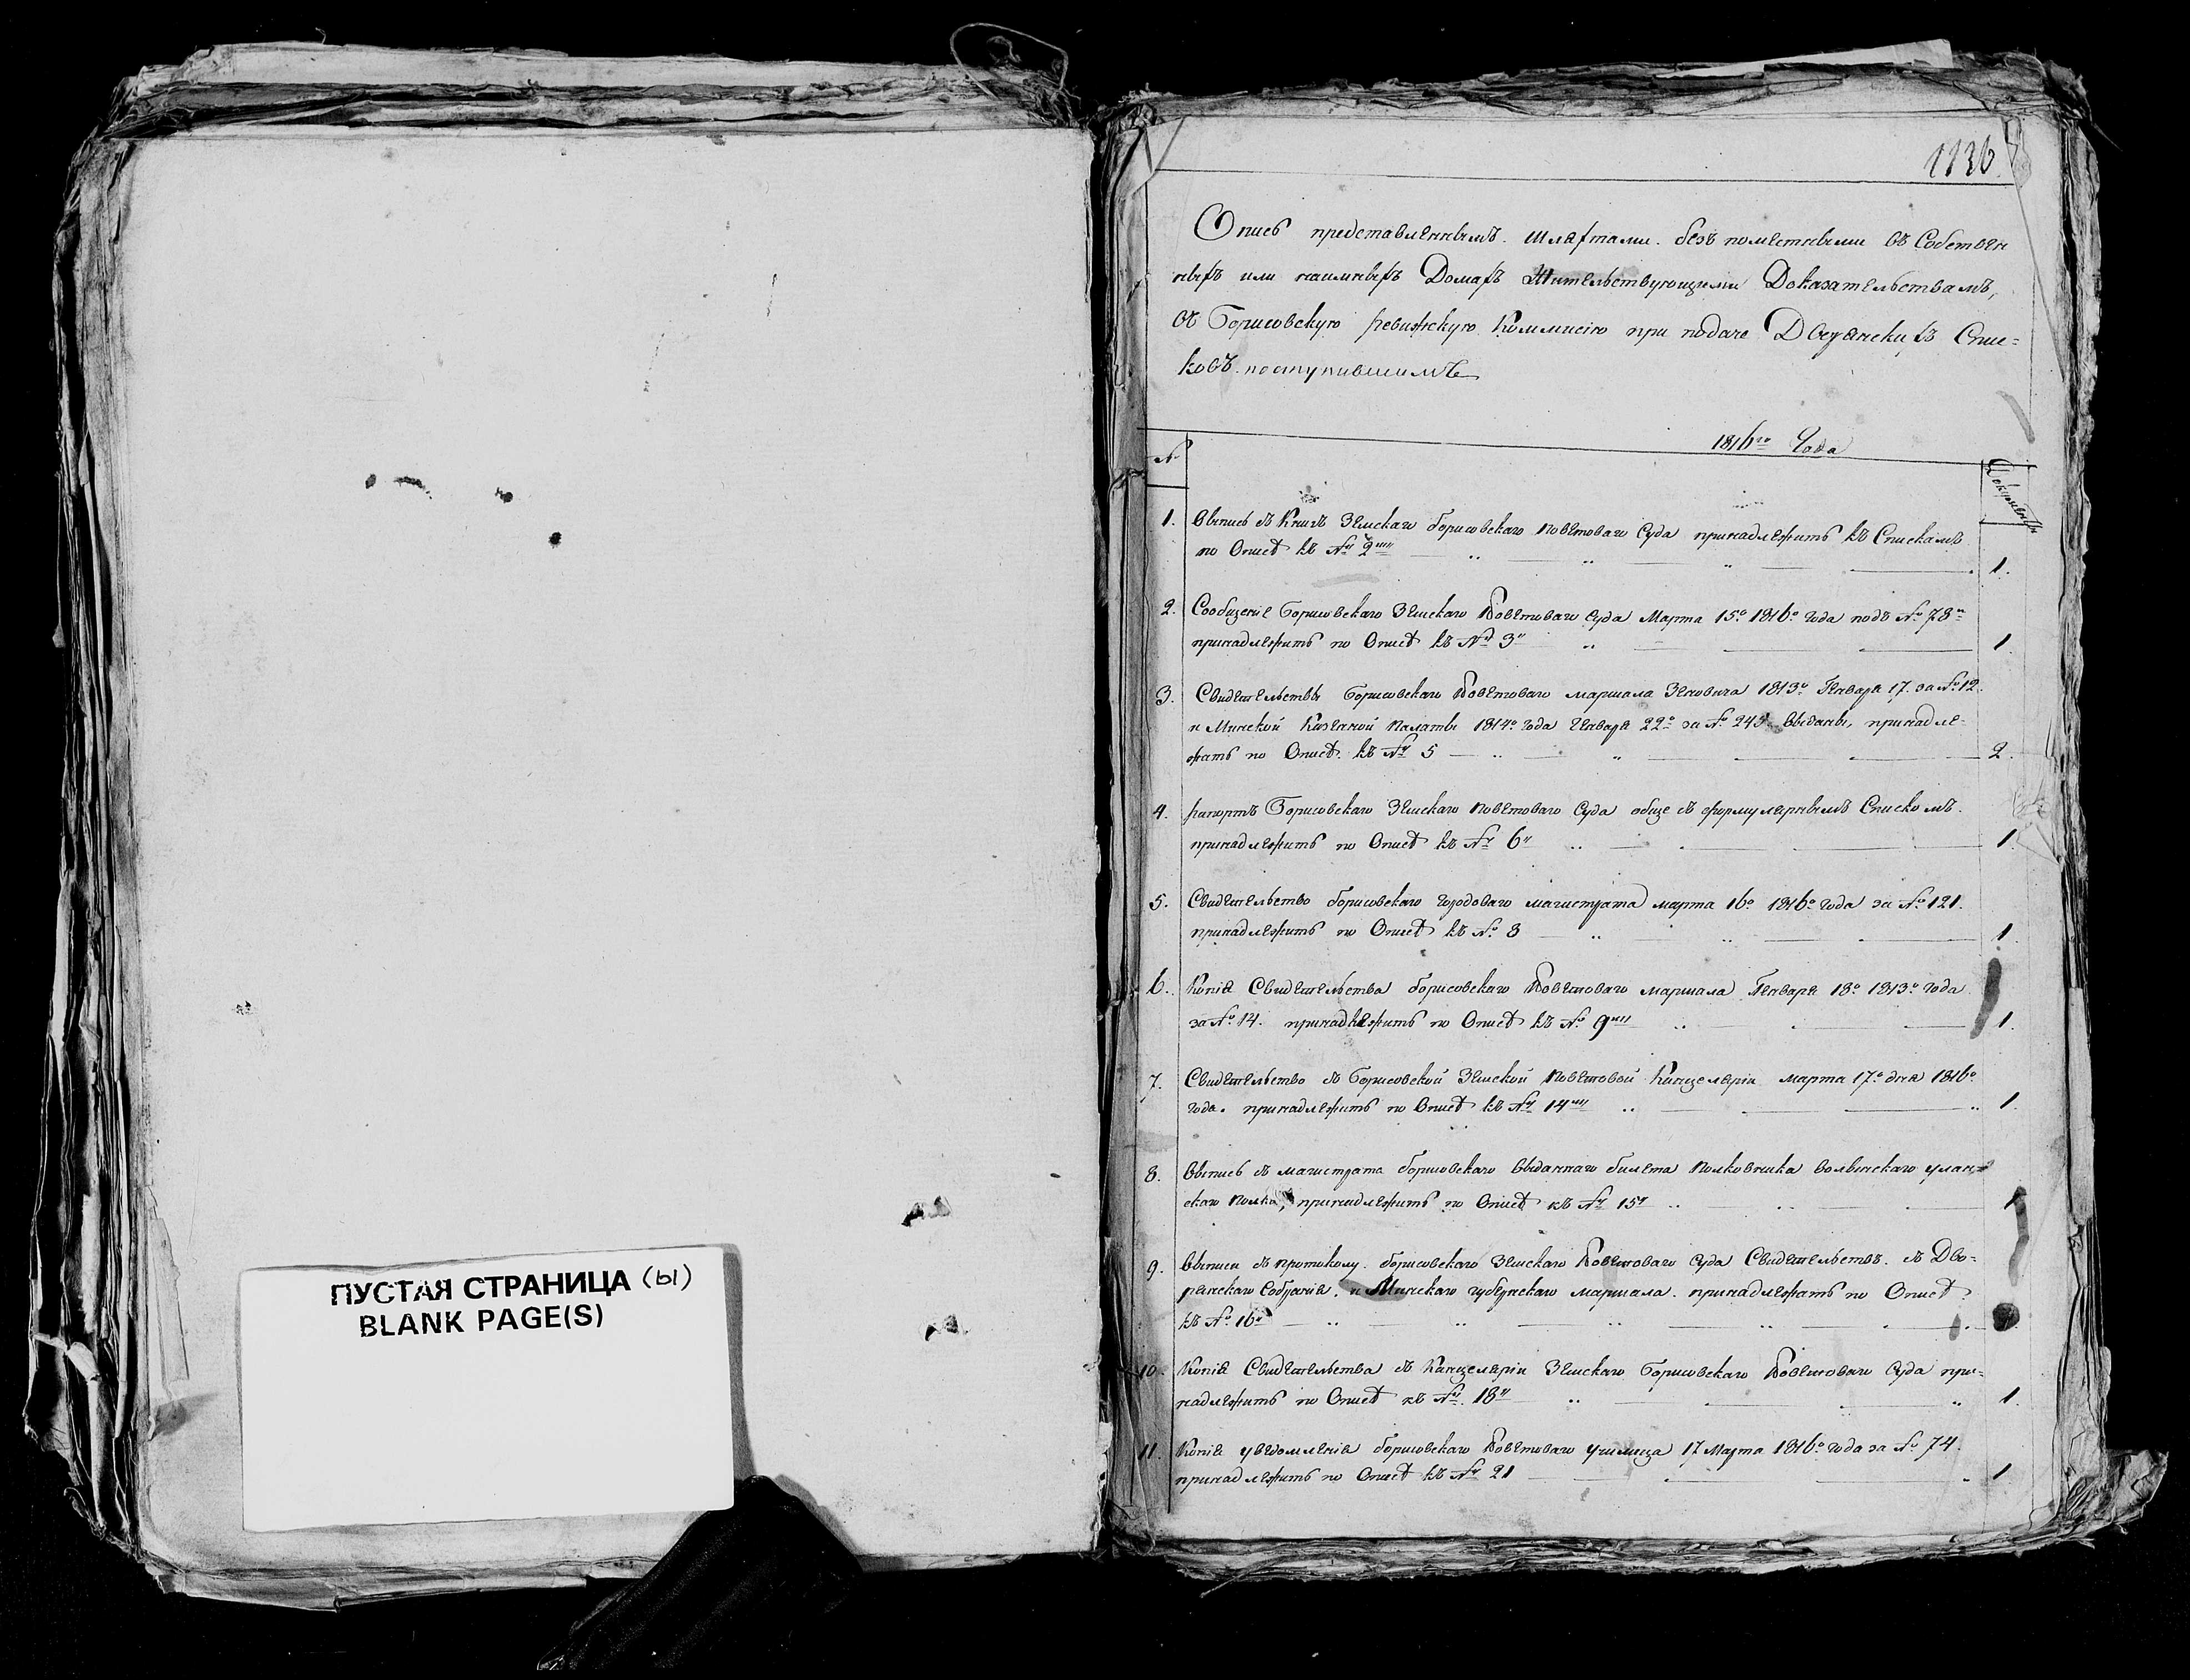 ПУСТАЯ СТРАНИЦА (ы)
BLANK PAGE(S)
1136
Опись представленнымъ шляхтами безъ поместными въ Собствен
ныхъ или наимныхъ Домахъ Жительствующими Доказательствамъ,
въ Борисовскую ревижскую Коммисію при подаче Дворянскихъ Спис=
ковъ поступившимъ
1816го Года
№
Документы
1. Выпись съ Книгъ Земскаго Борисовскаго поветоваго Суда принадлежить къ Спискамъ
по Описѣ къ № 2му 1.
2. Сообщеніе Борисовскаго Земскаго Поветоваго Суда Марта 15о 1816о года подъ № 78м
принадлежить по Описѣ къ № 3у 1
3. Свидетельствы Борисовскаго Поветоваго маршала Зеновича 1813о Генваря 17. за № 12.
и Минской Казенной Палаты 1814о года Генваря 22о за № 245 выданы, принадле-
жатъ по Описѣ къ № 5 2.
4. рапортъ Борисовскаго Земскаго поветоваго Суда обще съ формулярнымъ Спискомъ.
принадлежить по Описѣ къ № 6у 1.
5. Свидетельство Борисовскаго городоваго магистрата марта 16о 1816о года за № 121.
принадлежить по Описѣ къ № 8 1.
6. Копія Свидетельства Борисовскаго Поветоваго маршала Генваря 18о 1813о года
за № 14. принадлежить по Описѣ къ № 9му 1.
7. Свидетельство съ Борисовской Земской Поветовой Канцеляріи марта 17о дня 1816о
года. принадлежить по Описѣ къ № 14му 1.
8. Выпись съ магистрата Борисовскаго выданнаго билета Полковника волынскаго улан=
скаго Полка, принадлежить по Описѣ къ № 15у 1
9. Выписи съ протокому. Борисовскаго Земскаго Поветоваго Суда Свидетельствъ. съ Дво-
рянскаго Собранія. и Минскаго губернскаго маршала. принадлежатъ по Описѣ
къ № 16у
10. Копія Свидетельства съ Канцеляріи Земскаго Борисовскаго Поветоваго Суда при-
надлежить по Описѣ къ №. 18у 1.
11. Копія уведомленія Борисовскаго Поветоваго училища 17 Марта 1816о года за № 74.
принадлежить по Описѣ къ № 21 1